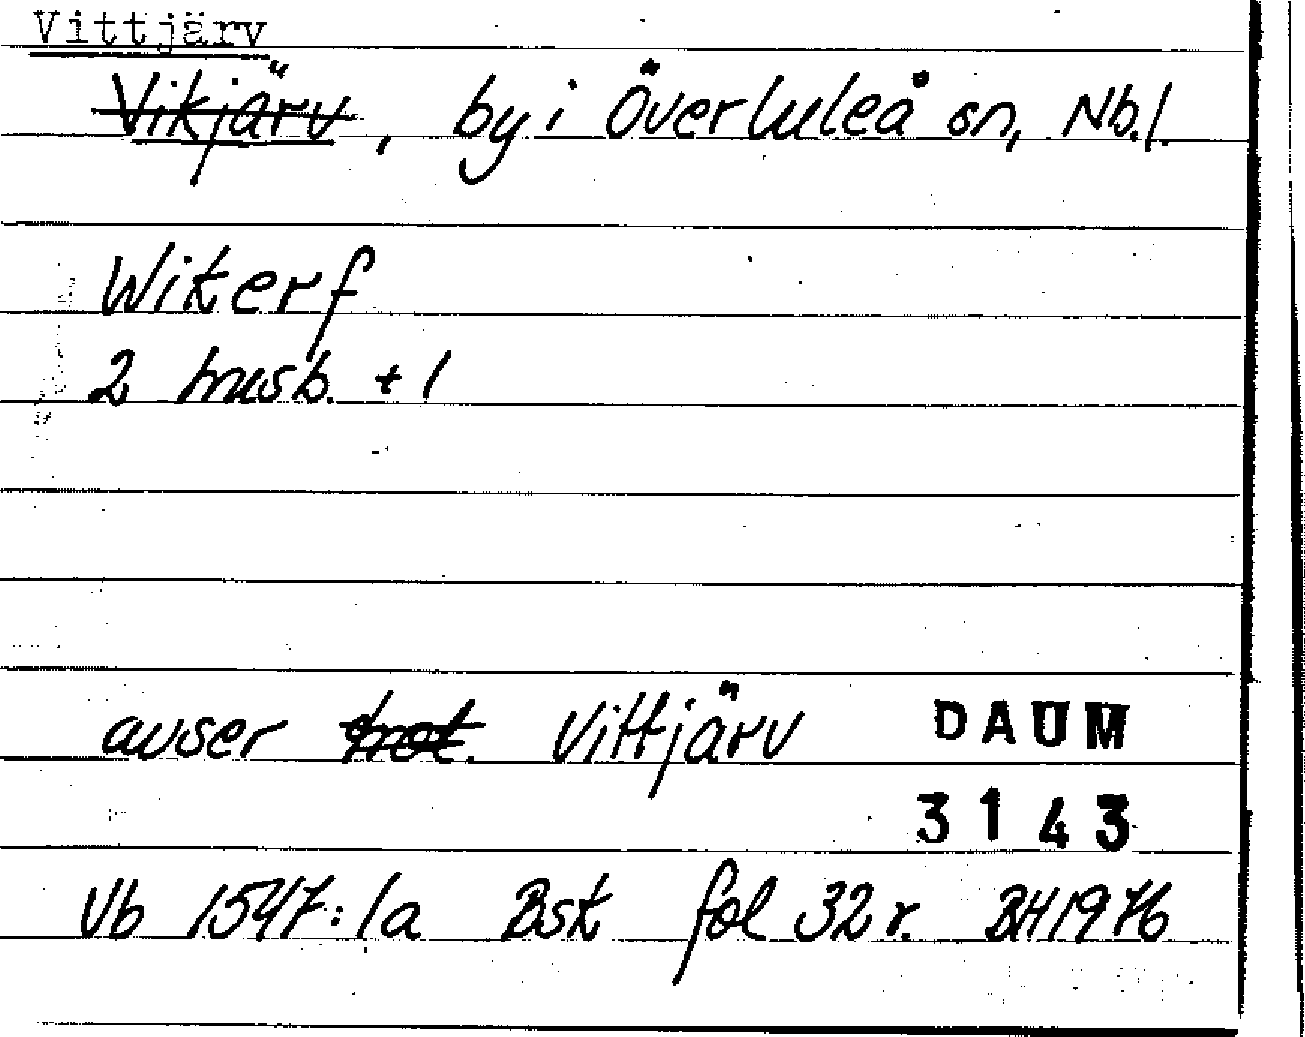 Vittjärv
Vikjärv, by i Överluleå sn, Nb.l.
Wikerf
2 husb. + 1
avser Vittjärv
DAUM
3143
Vb 1547:1a Bsk fol 32 r. BH1976